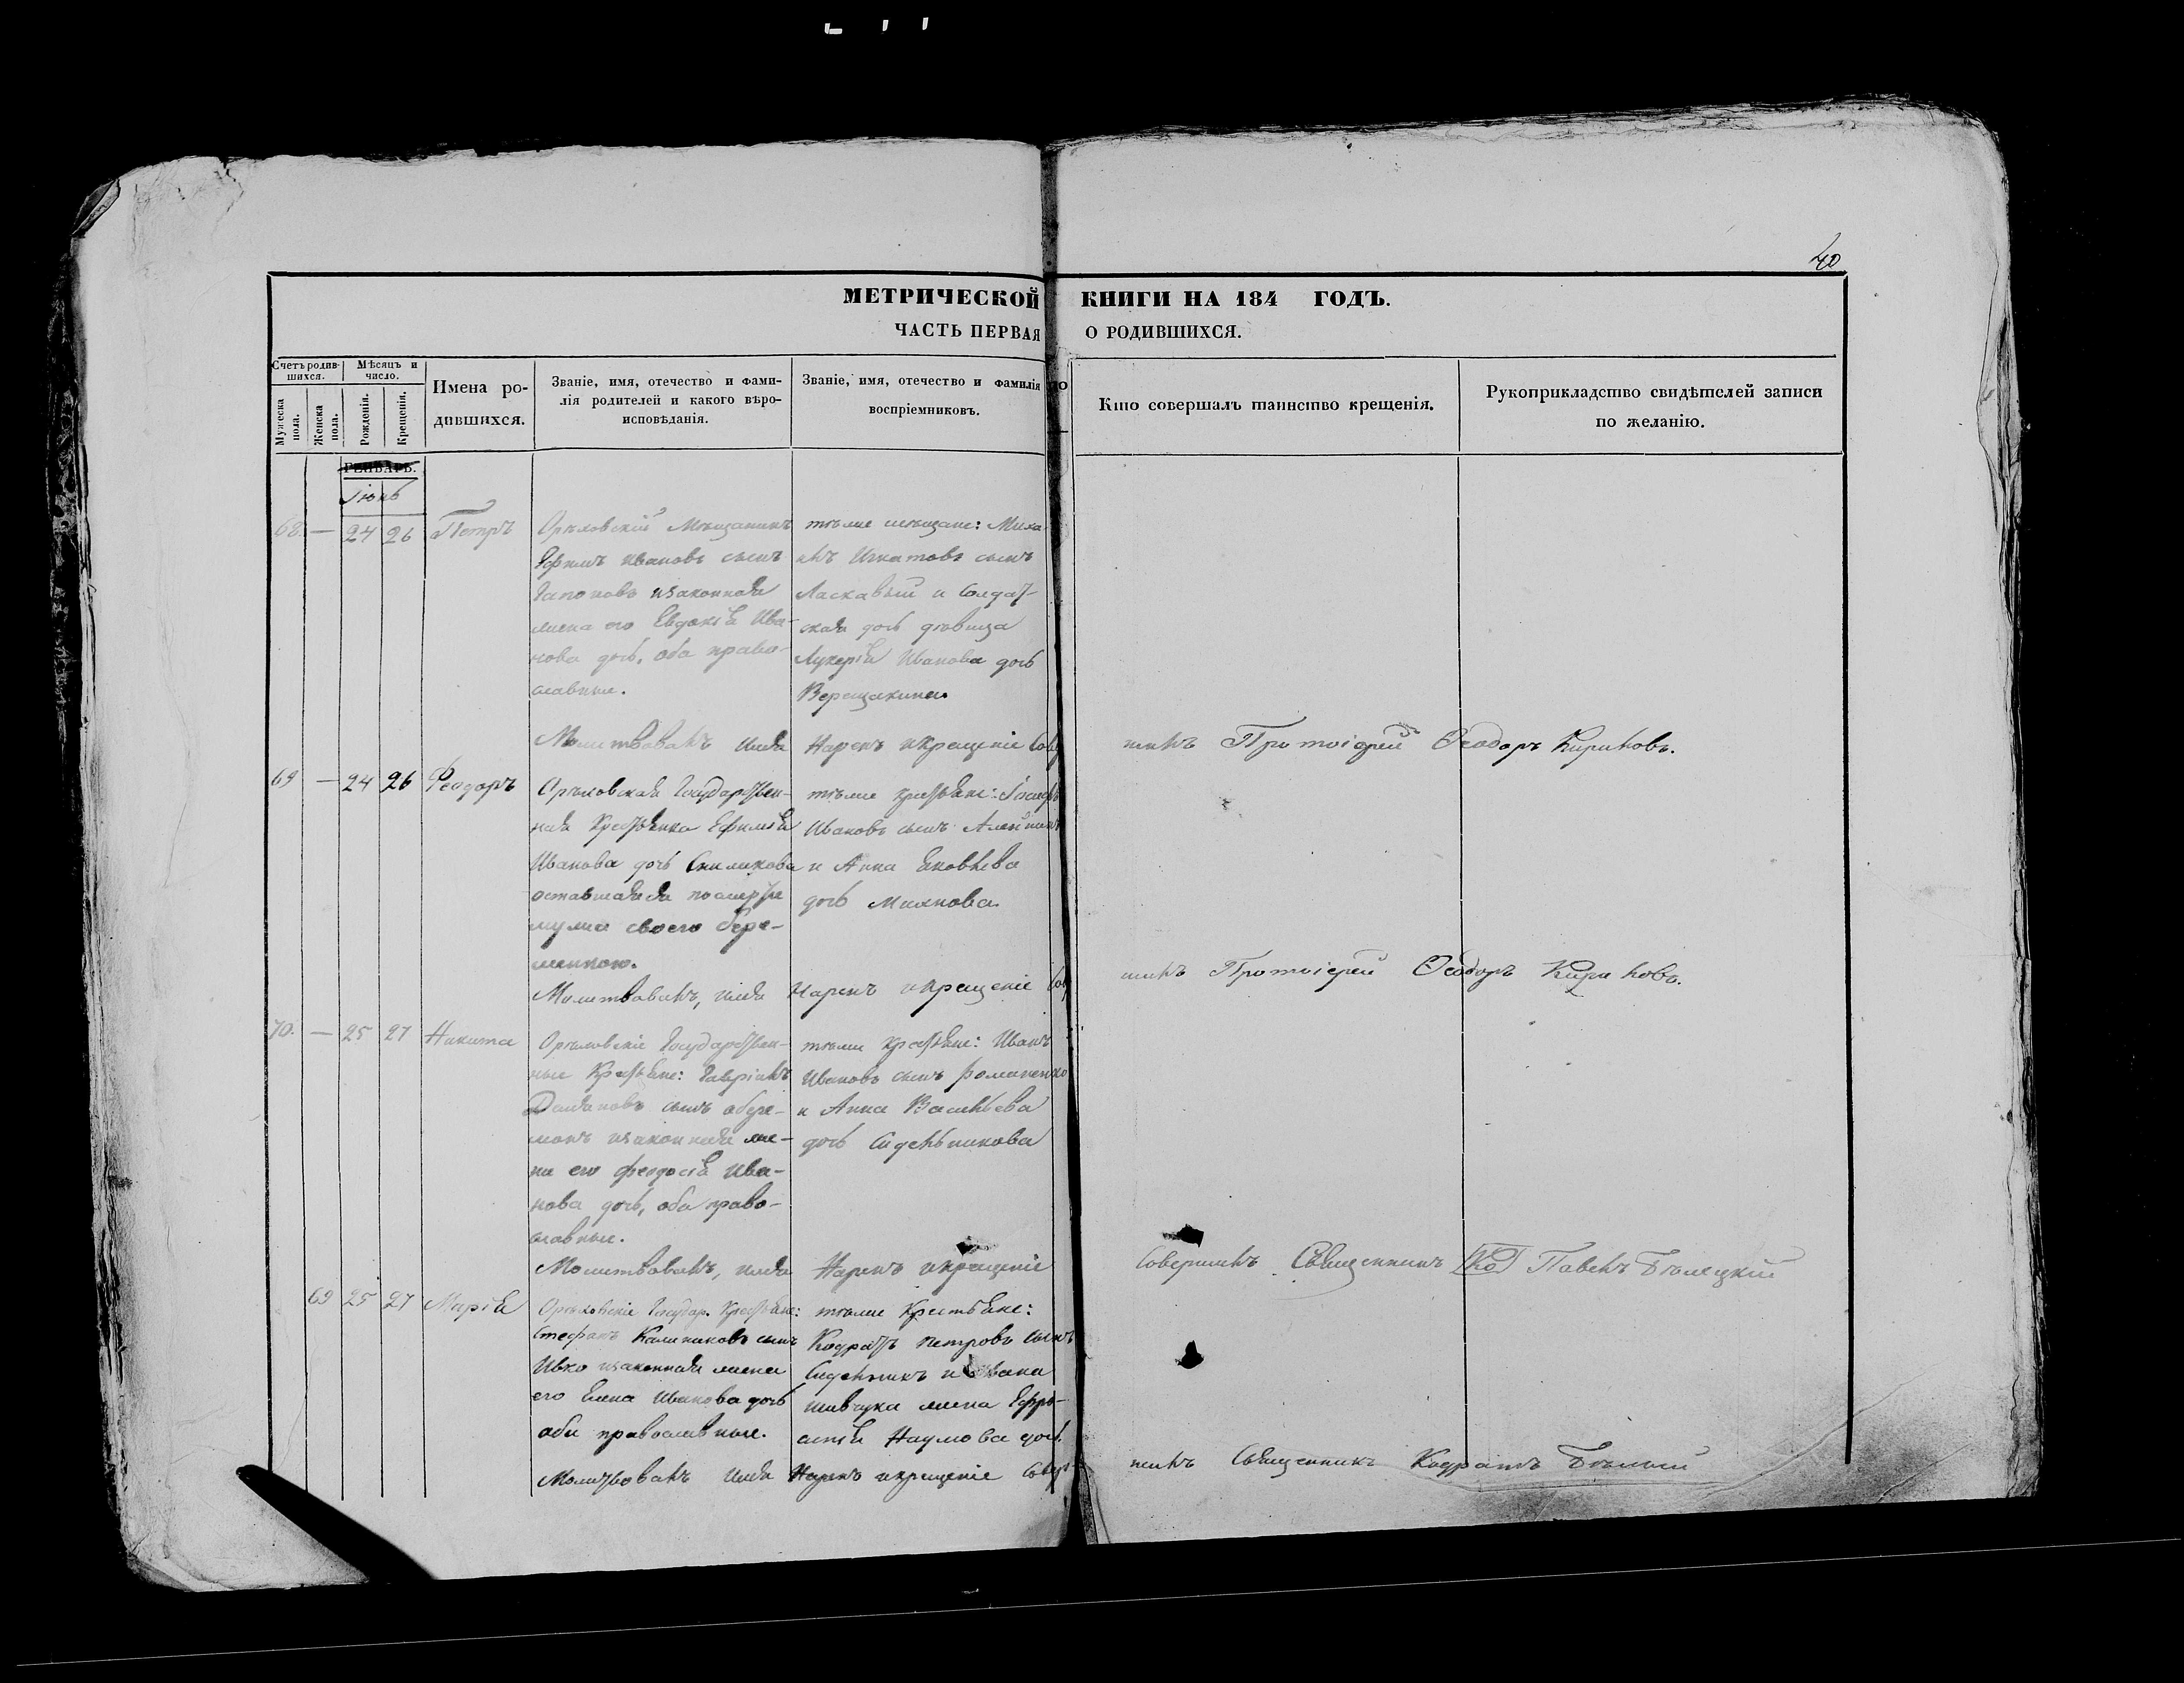 40
МЕТРИЧЕСКОЙ КНИГИ НА 184 ГОДЪ.
ЧАСТЬ ПЕРВАЯ О РОДИВШИХСЯ.
Счетъ родив-
шихся.
Мѣсяцъ и
число.
Мужеска
пола.
Женска
пола.
Рожденія.
Крещенія.
Имена ро-
дившихся.
Званіе, имя, отечество и фами-
лія родителей и какого вѣро-
исповѣданія.
Званіе, имя, отечество и фамилія
воспріемниковъ.
Кто совершалъ таинство крещенія.
Рукоприкладство свидѣтелей записи
по желанію.
ГЕНВАРЬ.
Іюнь
68. — 24 26 Петръ
Орѣховскій Мѣщанинъ
Ефимъ Ивановъ сынъ
Гапоновъ изаконная
жена его Евдокія Ива-
нова дочь, оба право-
славные.
тѣже мѣщане: Миха
илъ Игнатовъ сынъ
Ласкавый и Солдат-
ская дочь дѣвица
Лукерія Иванова дочь
Верещакина.
Молитвовалъ имя Нарекъ икрещеніе Сове
шилъ Протоіерей Ѳеодоръ Кириловъ.
69 — 24 26 Феодоръ
Орѣховская Государствен-
ная Крестьянка Ефимія
Иванова дочь
оставшаяся посмерти
мужа своего бере-
менною.
тѣже крестьяне: Іосифъ
Ивановъ сынъ
и Анна Яковлева
дочь
Молитвовалъ, имя Нарекъ икрещеніе Сов
шилъ Протоіерей Ѳеодоръ Кириловъ.
70. — 25 27 Никита
Орѣховскіе Государствен-
ные Крестьяне: Гавріилъ
Демяновъ сынъ
изаконная же-
на его Феодосія Ива-
нова дочь, оба право-
славные.
тѣже крестьяне: Иванъ
Ивановъ сынъ Романенко
и Анна Васильева
дочь Сидельникова
Молитвовалъ, имя Нарекъ икрещеніе
Совершилъ Священникъ Павелъ Бѣлецкій
69 25 27 Марія
Орѣховскіе Государ. Крестьяне:
Стефанъ Калиниковъ сынъ
Ивко изаконная жена
его Елена Иванова дочь
оба православные.
тѣже Крестьяне:
Кодратъ Петровъ сынъ
Сидельникъ и Ивана
Шевчука жена Ефро-
синія Наумова дочь.
Молитвовалъ имя Нарекъ икрещеніе Совер
шилъ Священникъ Кодратъ Бѣлый